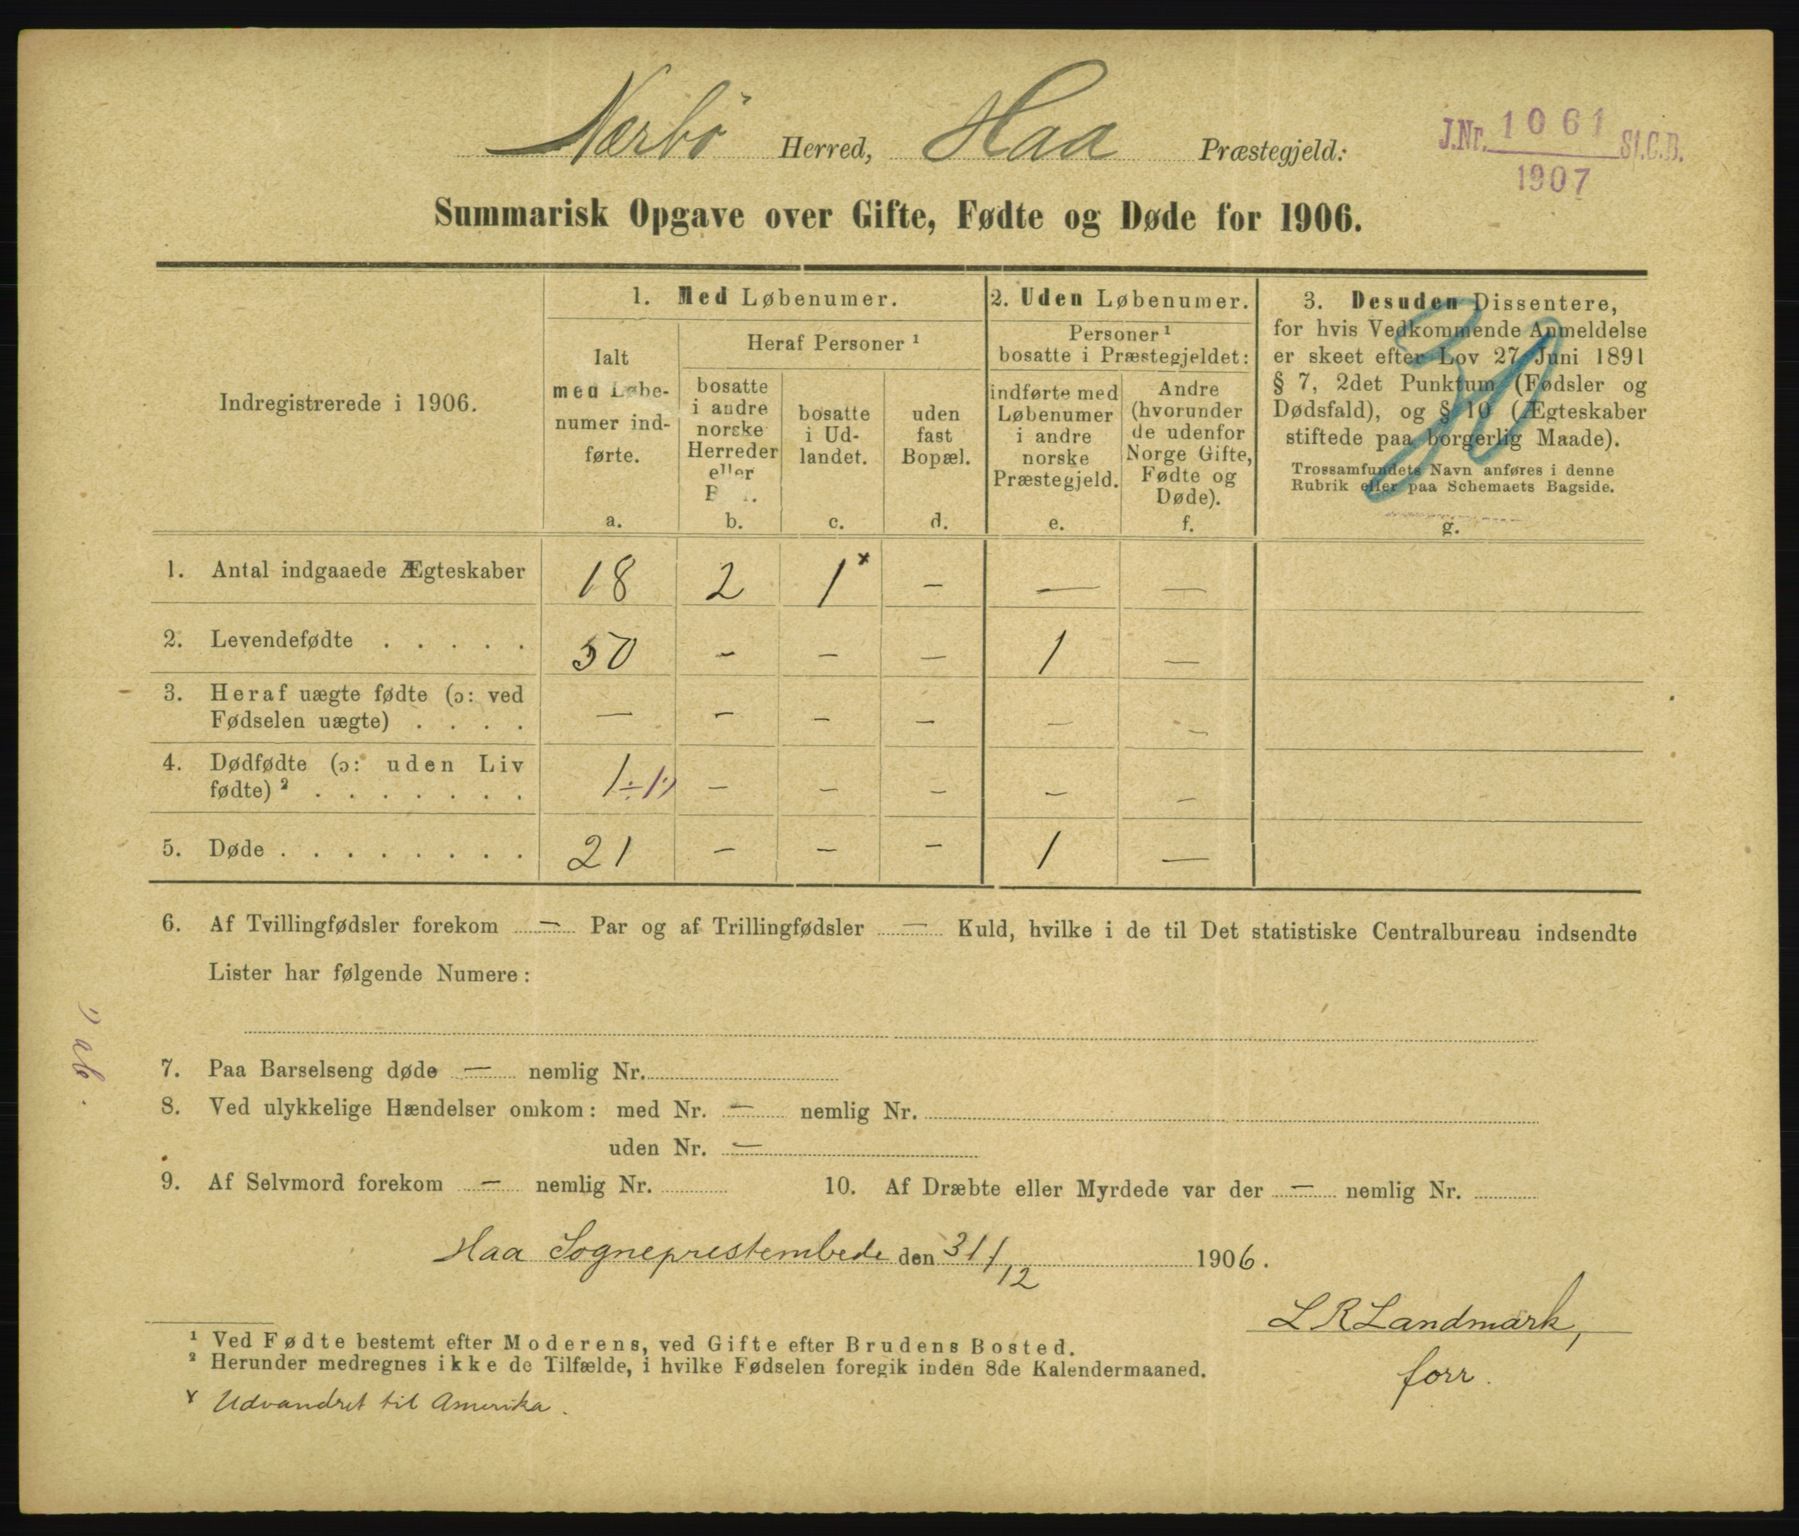 Nærbö Herred, Haa Præstegjeld:
J.Nr. 1061 St.C.B.
1907
Summarisk Opgave over Gifte, Fødte og Døde for 1906.
Indregistrerede i 1906.
1. Med Løbenumer.
Ialt
med Løbe-
numer ind-
førte.
a.
Heraf Personer ¹
bosatte
i andre
norske
Herreder
eller
b.
bosatte
i Ud-
landet.
c.
uden
fast
Bopæl.
d.
2. Uden Løbenumer.
Personer ¹
bosatte i Præstegjeldet:
indførte med
Løbenumer
i andre
norske
Præstegjeld.
e.
Andre
(hvorunder
de udenfor
Norge Gifte,
Fødte og
Døde).
f.
3. Desuden Dissentere,
for hvis Vedkommende Anmeldelse
er skeet efter Lov 27 Juni 1891
§ 7, 2det Punktum (Fødsler og
Dødsfald), og § 10 (Ægteskaber
stiftede paa borgerlig Maade).
Trossamfundets Navn anføres i denne
Rubrik eller paa Schemaets Bagside.
g.
1. Antal indgaaede Ægteskaber 18 2 1 x — — —
2. Levendefødte . . . . . 50 — — — 1 —
3. Heraf uægte fødte (ɔ: ved
Fødselen uægte) . . . . — — — — — —
4. Dødfødte (ɔ: uden Liv
fødte) ² . . . . . . . 1 ÷1) — — — — —
5. Døde . . . . . . . . 21 — — — 1 —
6. Af Tvillingfødsler forekom — Par og af Trillingfødsler — Kuld, hvilke i de til Det statistiske Centralbureau indsendte
Lister har følgende Numere:
7. Paa Barselseng døde — nemlig Nr.
8. Ved ulykkelige Hændelser omkom: med Nr. — nemlig Nr.
uden Nr. —
9. Af Selvmord forekom — nemlig Nr. 10. Af Dræbte eller Myrdede var der — nemlig Nr.
Haa Sogneprestembede den 31/12 1906.
L R Landmark,
forr.
¹ Ved Fødte bestemt efter Moderens, ved Gifte efter Brudens Bosted.
² Herunder medregnes ikke de Tilfælde, i hvilke Fødselen foregik inden 8de Kalendermaaned.
x Udvandret til Amerika.